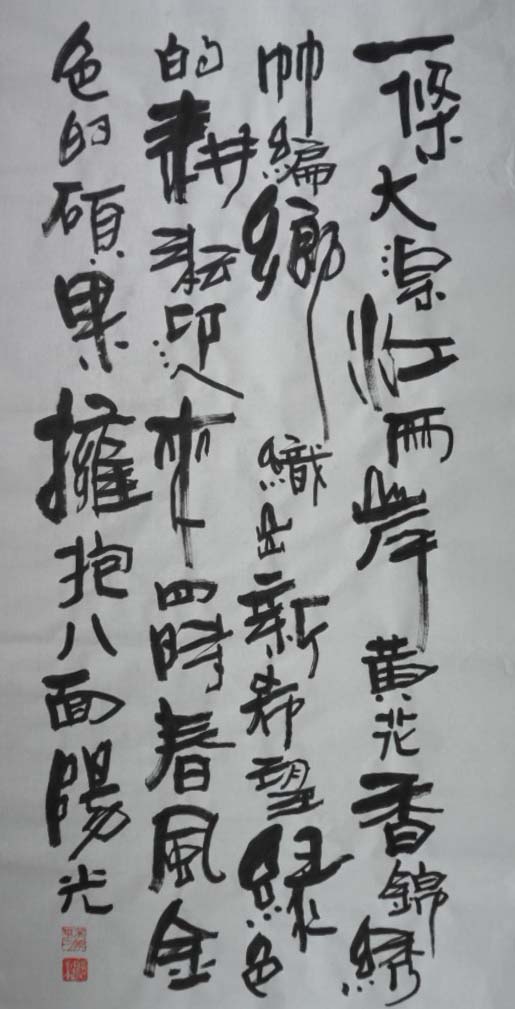 一條大江兩岸黃花香錦綉
編鄉織出新希望綠色
的耕耘迎來四時春風金
色的碩果擁抱八面陽光